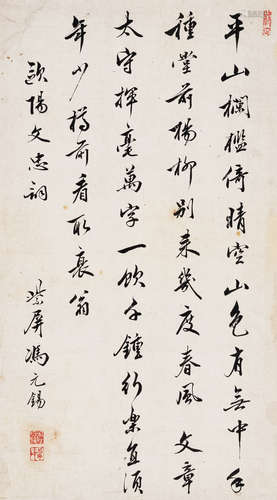 平山欄檻倚晴空山色有無中手
種堂前楊柳別来幾度春風文章
太守揮毫萬字一飲千鍾行樂直須
年少樽前看取衰翁
歐陽文忠詞
馮元錫